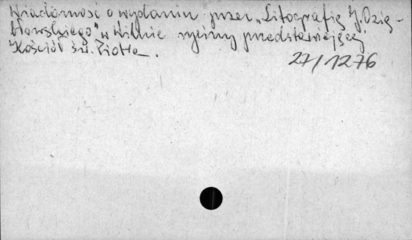 Wiadomość o wydaniu przez „Litografię J. Ozię-
błowskiego" w Wilnie ryciny przedstawiającej
Kościół św. Piotra.
27/1276